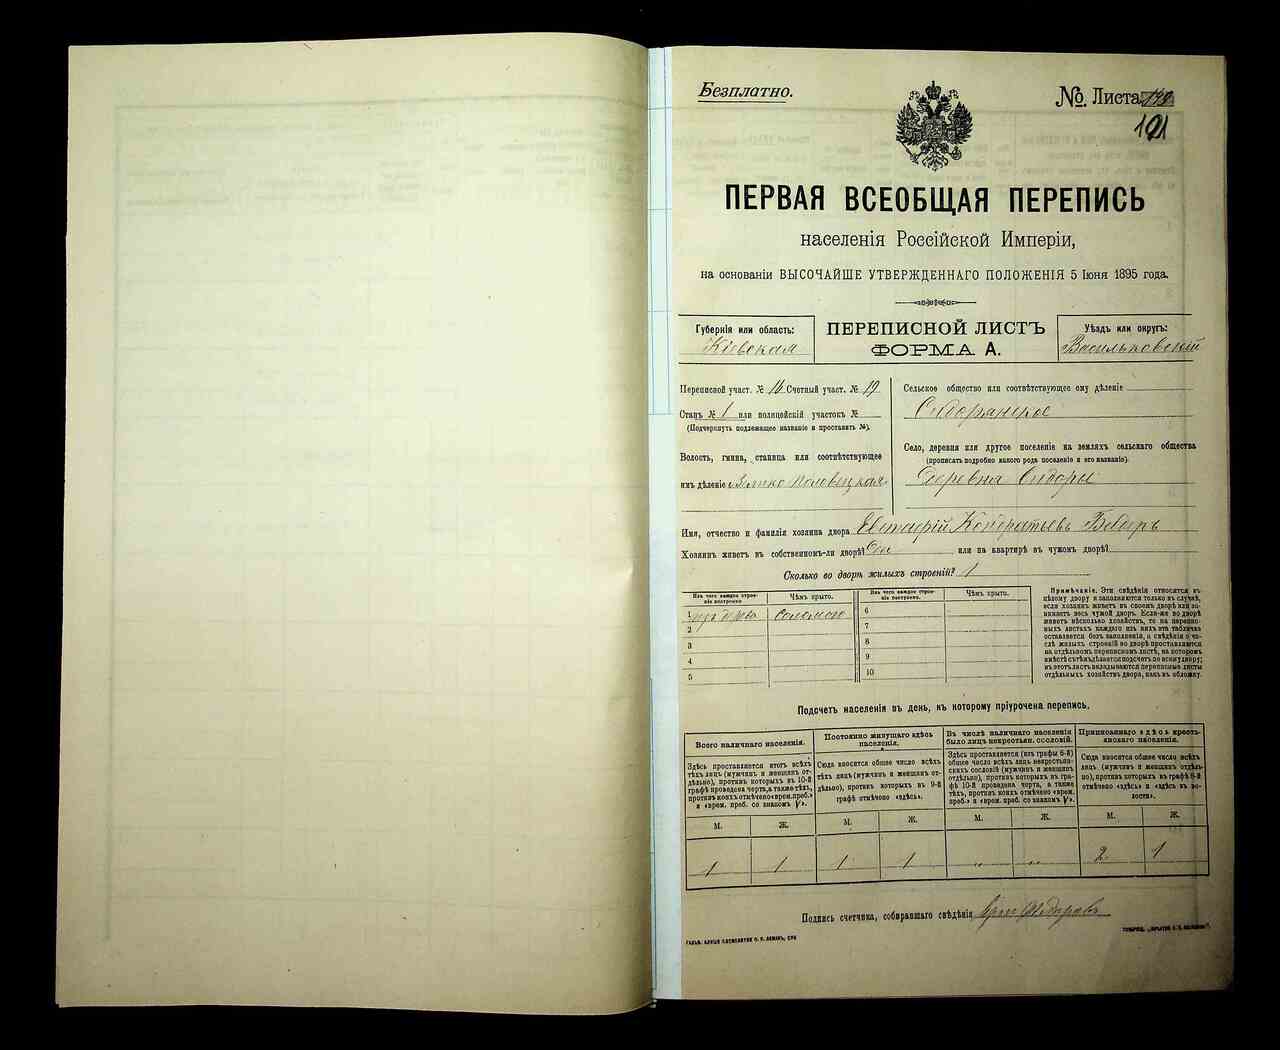 Безплатно.
№ Листа
121
ПЕРВАЯ ВСЕОБЩАЯ ПЕРЕПИСЬ
населенія Россійской Имперіи,
на основаніи ВЫСОЧАЙШЕ УТВЕРЖДЕННАГО ПОЛОЖЕНІЯ 5 Іюня 1895 года.
Губернія или область:
Кіевская
ПЕРЕПИСНОЙ ЛИСТЪ
ФОРМА А.
Уѣздъ или округъ:
Васильковскій
Переписной участ. № 16 Счетный участ. № 19
Станъ № 1 или полицейскій участокъ №
(Подчеркнуть подлежащее названіе и проставить №).
Волость, гмина, станица или соотвѣтствующее
имъ дѣленіе Велико Половецкая
Сельское общество или соотвѣтствующее ему дѣленіе
Сидорянское
Село, деревня или другое поселеніе на земляхъ сельскаго общества
(прописать подробно какого рода поселеніе и его названіе).
Деревня Сидоры
Имя, отчество и фамилія хозяина двора Евстафій Кондратьевъ
Хозяинъ живетъ въ собственномъ-ли дворѣ? или на квартирѣ въ чужомъ дворѣ?
Сколько во дворѣ жилыхъ строеній? 1
Изъ чего каждое строеніе построено
Чѣмъ крыто.
Изъ чего каждое строеніе построено.
Чѣмъ крыто.
1 Соломою
2
3
4
5
6
7
8
9
10
Примѣчаніе. Эти свѣдѣнія относятся къ
цѣлому двору и заполняются только въ случаѣ,
если хозяинъ живетъ въ своемъ дворѣ или занимаетъ
весь чужой дворъ. Если-же во дворѣ
живетъ нѣсколько хозяйствъ, то на переписныхъ
листахъ каждаго изъ нихъ эта табличка
оставляется безъ заполненія, а свѣдѣнія о числѣ
жилыхъ строеній во дворѣ проставляются
на отдѣльномъ переписномъ листѣ, на которомъ
вмѣстѣ съ тѣмъ дѣлается подсчетъ по всему двору;
въ этотъ листъ вкладываются переписные листы
отдѣльныхъ хозяйствъ двора, какъ въ обложку.
Подсчетъ населенія въ день, къ которому пріурочена перепись.
Всего наличнаго населенія.
Здѣсь проставляется итогъ всѣхъ
тѣхъ лицъ (мужчинъ и женщинъ отдѣльно),
противъ которыхъ въ 10-й
графѣ проведена черта, а также тѣхъ,
противъ коихъ отмѣчено «врем. преб.»
и «врем. преб. со знакомъ V».
Постоянно живущаго здѣсь
населенія.
Сюда вносится общее число всѣхъ
тѣхъ лицъ (мужчинъ и женщинъ отдѣльно),
противъ которыхъ въ 9-й
графѣ отмѣчено «здѣсь».
Въ числѣ наличнаго населенія
было лицъ некрестьян. сословій.
Здѣсь проставляется (изъ графы 6-й)
общее число всѣхъ лицъ некрестьянскихъ
сословій (мужчинъ и женщинъ
отдѣльно), противъ которыхъ въ графѣ
10-й проведена черта, а также
тѣхъ, противъ коихъ отмѣчено «врем.
преб.» и «врем. преб. со знакомъ V».
Приписаннаго здѣсь крестьянскаго
населенія.
Сюда вносится общее число всѣхъ
лицъ (мужчинъ и женщинъ отдѣльно),
противъ которыхъ въ графѣ 8-й
отмѣчено «здѣсь» и «здѣсь въ волости».
М. Ж. М. Ж. М. Ж. М. Ж.
1 1 1 1 „ „ 2 1
Подпись счетчика, собиравшаго свѣдѣнія